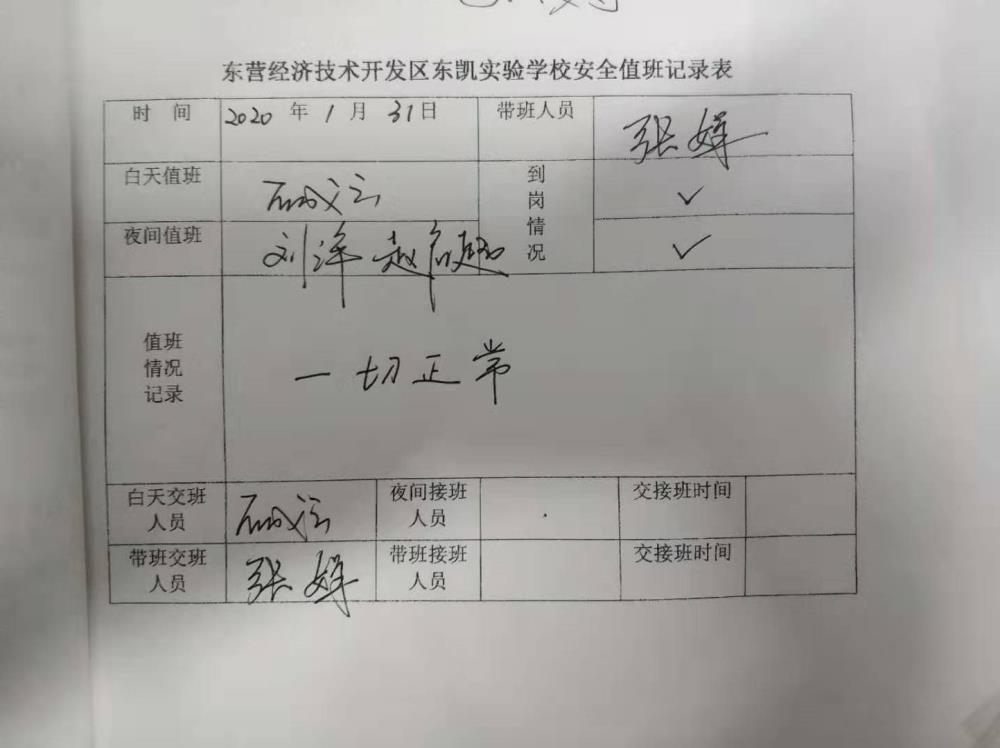 东营经济技术开发区东凯实验学校安全值班记录表
时 间 2020 年 1 月 31日 带班人员 张婵
白天值班 到岗情况 ✓
夜间值班 刘洋 赵 ✓
值班情况记录 一切正常
白天交班人员 夜间接班人员 交接班时间
带班交班人员 张婵 带班接班人员 交接班时间